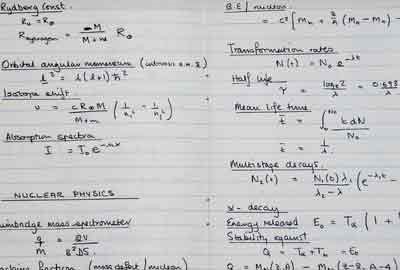 Rydberg Const.
R₀ = R∞
R_hydrogen = M / (M + m) R∞
Orbital angular momentum
l² = l(l+1) ħ²
Isotope shift.
υ = cR∞M / (M+m) (1/n₁² − 1/n₂²)
Absorption spectra
I = I₀ e
NUCLEAR PHYSICS
mass spectrometer
q/m = 2V / B²DS
fraction (mass defect / nucleon)
B.E / nucleon
= c² [ Mn + Z/A (MH − Mn) −
Transformation rates
N(t) = N₀ e^-λt
Half life
τ = loge2 / λ = 0.693 / λ
Mean life time
t̄ = ∫ t dN / N₀
t̄ = 1/λ
Multistage decays.
N₂(t) = N₁(0) λ₁ / (λ₂ − λ₁) (e^-λ₁t −
α - decay
Energy released E₀ = Tα ( 1 +
Stability against
Q = Tα + Tb = E₀
Q = (Z, A) − (Z-2, A-4)